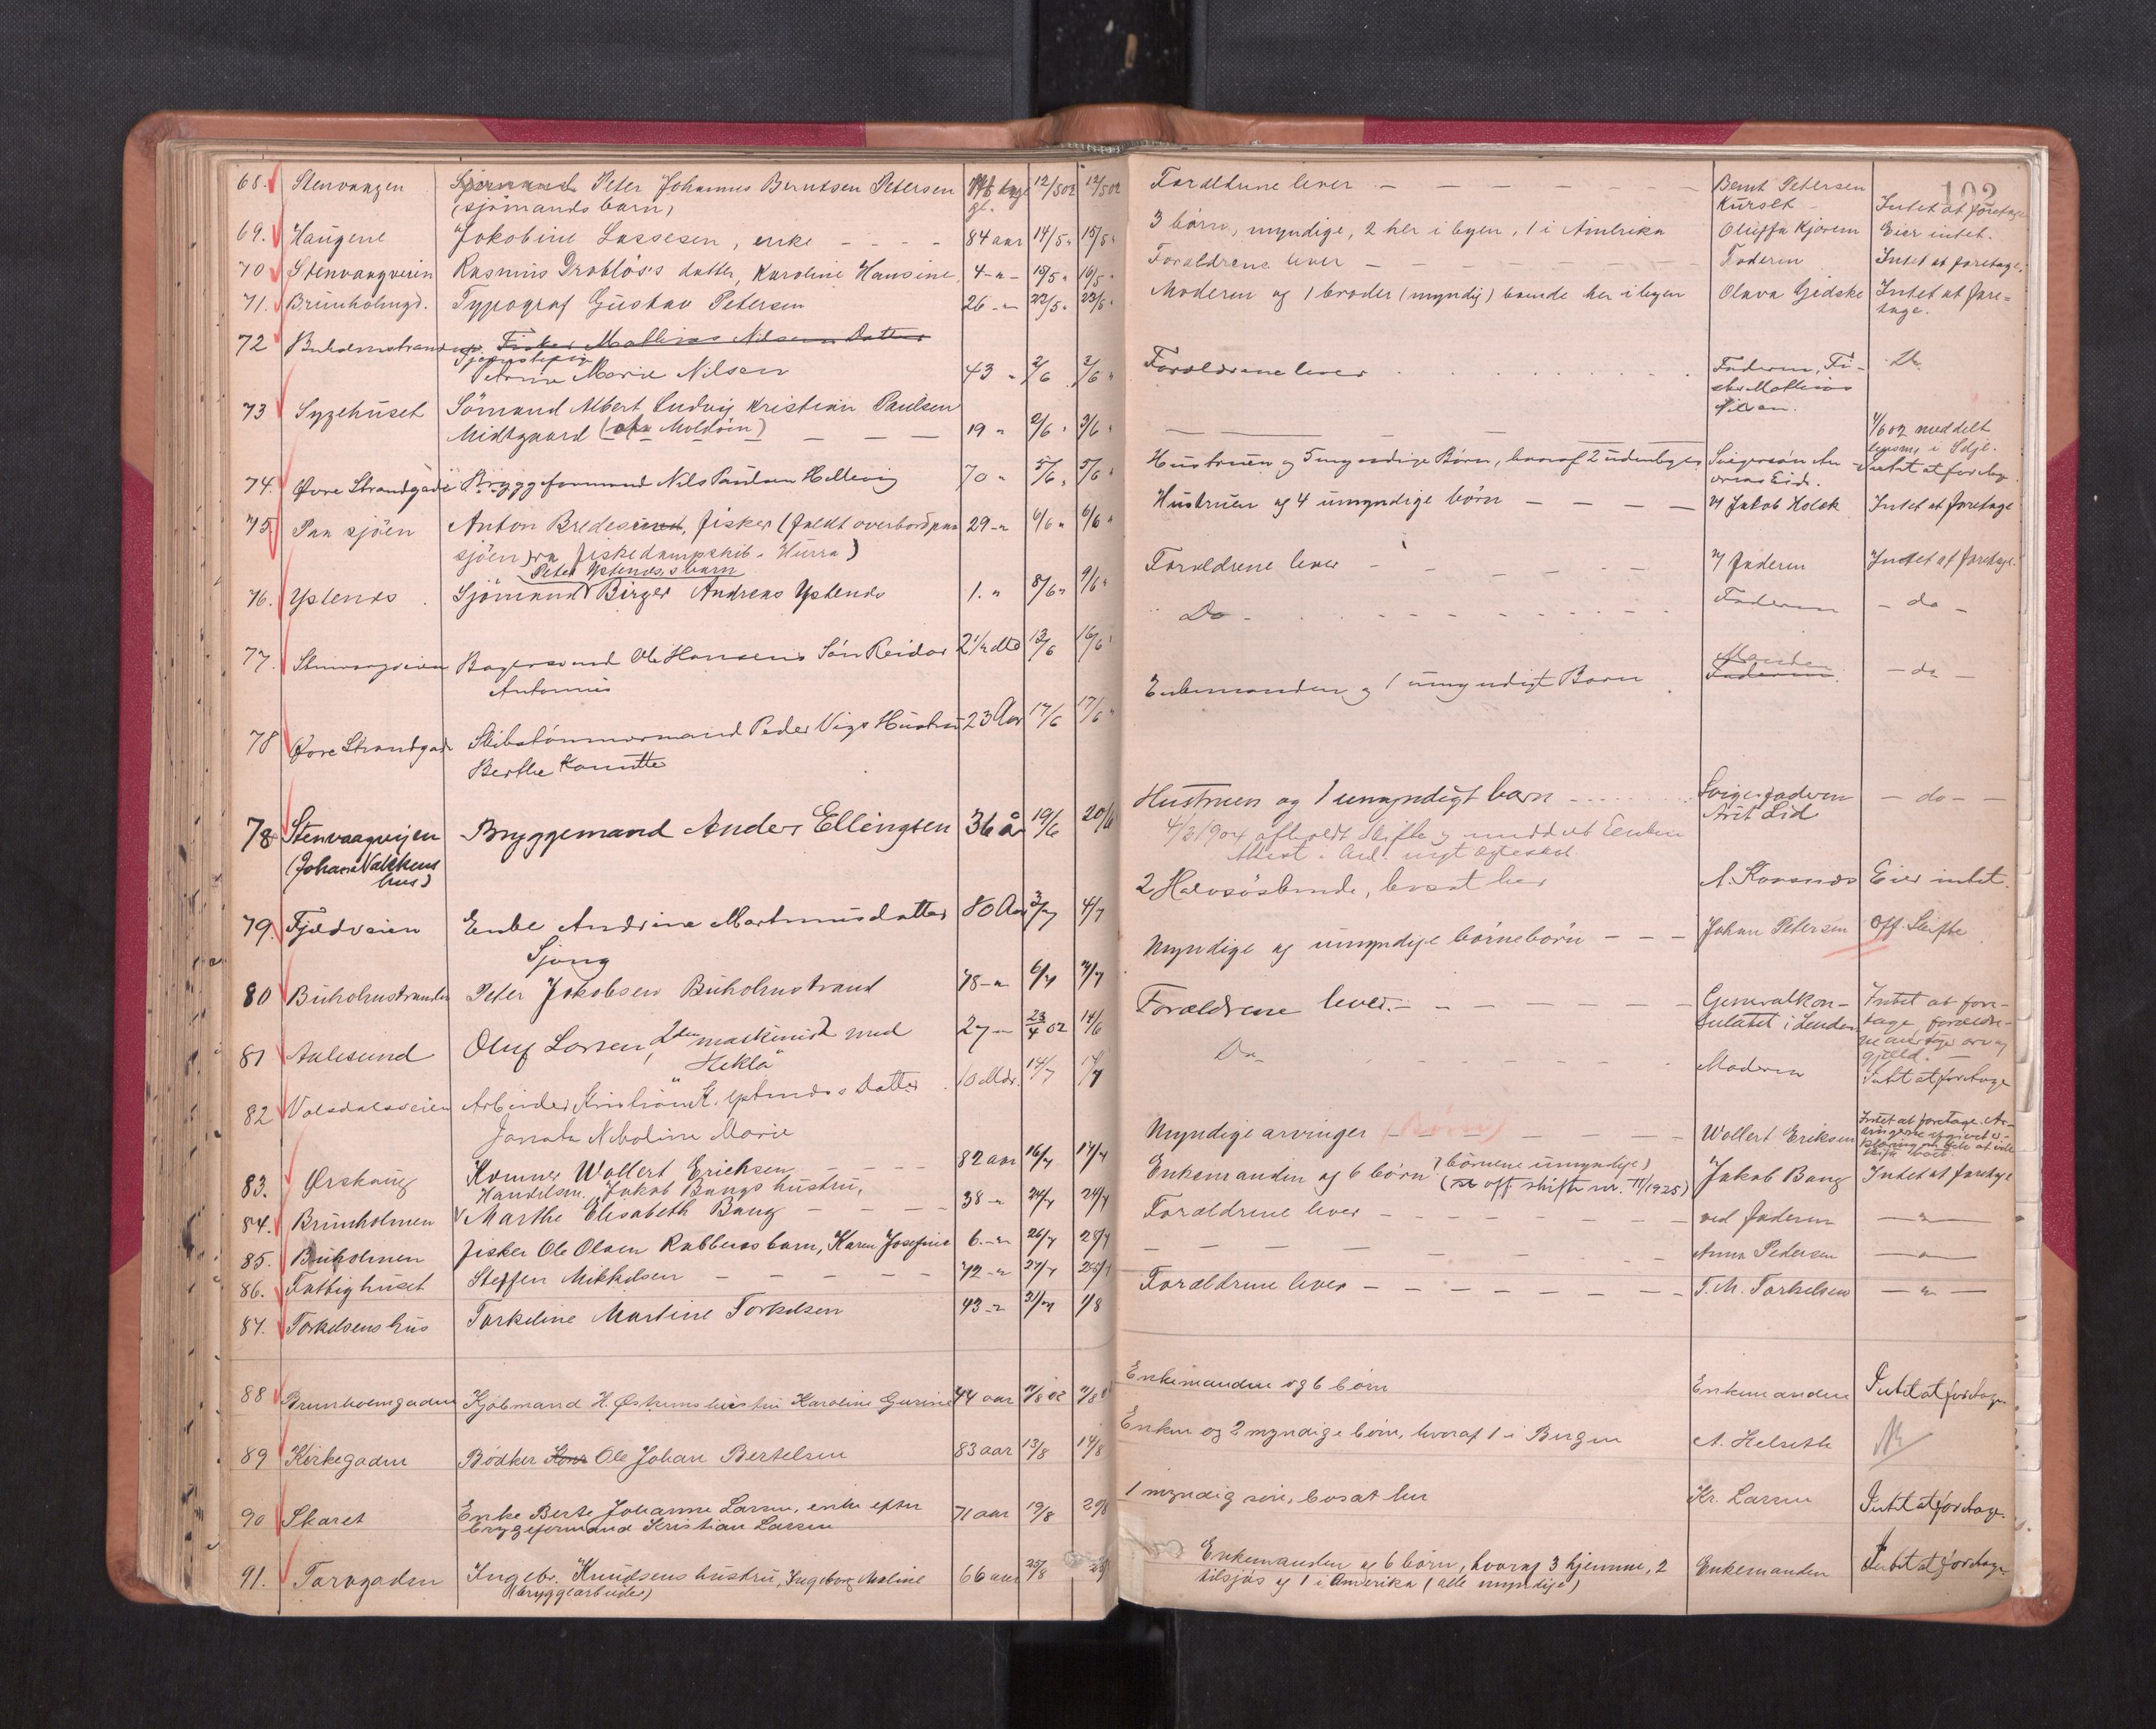 102
68. Stenvaagen Peter Johannes Berntsen Petersen 12/5 02 12/5 02 Forældrene lever Bernt Petersen
(sjömands barn) Kurset Intet at foretage
69. Haugene Jakobine Lassesen, enke 84 aar 14/5 " 15/5 " 3 börn, myndige, 2 her i byen, 1 i Amerika Oluffa Kjorem Eier intet.
70 Stenvaagveien Rasmus Drablös's datter, Karoline Hansine 4 - " - 15/5 " 16/5 " Forældrene lever Faderen Intet at foretage.
71. Brunholmgd. Typograf Gustav Petersen 26 - " 22/5 " 23/5 " Moderen og 1 broder (myndig) boende her i byen Olava Gjedske Intet at fore=
tage.
72 Buholmstranden Fisker Mathias Nilsens Datter
Tjenestepige
Anna Marie Nilsen 43 " 2/6 3/6 " Forældrene lever Faderen, Fi-
sker Mathias
Nilsen.
73 Sygehuset Sömand Albert Ludvig Kristian Paulsen
Midtgaard (af Moldöen) 19 " 2/6 " 3/6 " 4/6 02 meddelt
lensm. i Sdje.
74. Øvre Strandgade Bryggeformand Nils Paulsen Hellevig 70 " 5/6 " 5/6 " Hustruen og 5 myndige Börn, hvoraf 2 udenbyes Svigersön An-
dreas Eide. Intet at foretag
75. Paa sjöen Anton Bredesen, fisker (faldt overbord paa 29 - " 6/6 " 6/6 " Hustruen og 4 umyndige börn v/ Jakob Holsk Intet at foretage
sjöen fra fiskedampskib "Hurra")
Peter Ystenes's barn
76. Ystenes Sjömand Birger Andreas Ystenes 1. " 8/6 " 9/6 " Forældrene lever v/ faderen Intet at foretage.
77. Stenvaagveien Bagersvend Ole Hansens Sön Reidar 2 1/2 Md 13/6 16/6 " Do - Faderen - do -
Antonius
78 Øvre Strandgade Skibstömmermand Peder Vigs Hustru 23 Aar 17/6 17/6 " Enkemanden og 1 umyndigt Barn Manden
Faderen - do -
Berthe Kanutte
78 Stenvaagveien Bryggemand Anders Ellingsen 36 år 19/6 20/6 Hustruen og 1 umyndigt barn Svigerfaderen - do -
Arit Lid
(Johan Valkkens
hus) 4/3 1904 afholdt Skifte og meddelt Enken
Attest i anl. nyt Egteskab
79. Fjeldveien Enke Andrine Martinusdatter 80 Aar 3/7 4/7 2 Halvsöskende, bosat her A. Korsnes Eier intet.
Sjong
80 Buholmstranden Peter Jakobsen Buholmstrand 75 - " 6/7 7/7 Myndige og umyndige börnebörn Johan Petersen Off. Skifte
81 Aalesund Oluf Larsen, 2den maskinist med 27 - " 23/4 02 14/6 Forældrene lever. Generalkon-
sulatet i London Intet at fore-
tage, forældre-
ne overtager arv og
gjæld.
"Hekla"
82 Volsdalsveien Arbeider Kristian K. Ystenes's Datter 10 Mdr. 14/7 17/7 Do - Moderen Intet at foretage
Janata Nikoline Marie
83. Ørskoug Kræmmer Wollert Erichsen 82 aar 16/7 17/7 Myndige arvinger (Börn) Wollert Eriksen Intet at foretage.
84. Brunholmen Handelsm. Jakob Bangs hustru,
Marthe Elisabeth Bang 38 - " 24/7 24/7 Enkemanden og 6 börn (börnene umyndige) Jakob Bang Intet at foretage
(se off skifte nr. III/1925)
85. Buholmen fisker Ole Olsen Rabbens barn, Karen Josefine 6. - " 26/7 28/7 Forældrene lever ved faderen - " -
86. Fattighuset Steffen Mikkelsen 72 - " 27/7 28/7 Anna Pedersen - " -
87. Torkelsens hus Torkeline Martine Torkelsen 43 - " 31/7 1/8 Forældrene lever T. M. Torkelsen - " -
88 Brunholmgaden Kjöbmand H. Østrems hustru Karoline Gurine 44 aar 7/8 02 7/8 02 Enkemanden og 6 börn Enkemanden Intet at foretage
89 Kirkegaden Bödker Ole Johan Bertelsen 83 aar 13/8 14/8 Enken og 2 myndige börn, hvoraf 1 i Bergen A. Helseth
90 Skaret Enke Berte Johanne Larsen, enke efter
bryggeformand Kristian Larsen 71 aar 19/8 20/8 1 myndig sön, bosat her Kr. Larsen Intet at foretage.
91. Torvgaden Ingebr. Knudsens hustru, Ingeborg Maline 66 aar 25/8 Enkemanden og 6 börn, hvoraf 3 hjemme, 2 Enkemanden Intet at foretage.
(bryggearbeider) tilsjös og 1 i Amerika (alle myndige)